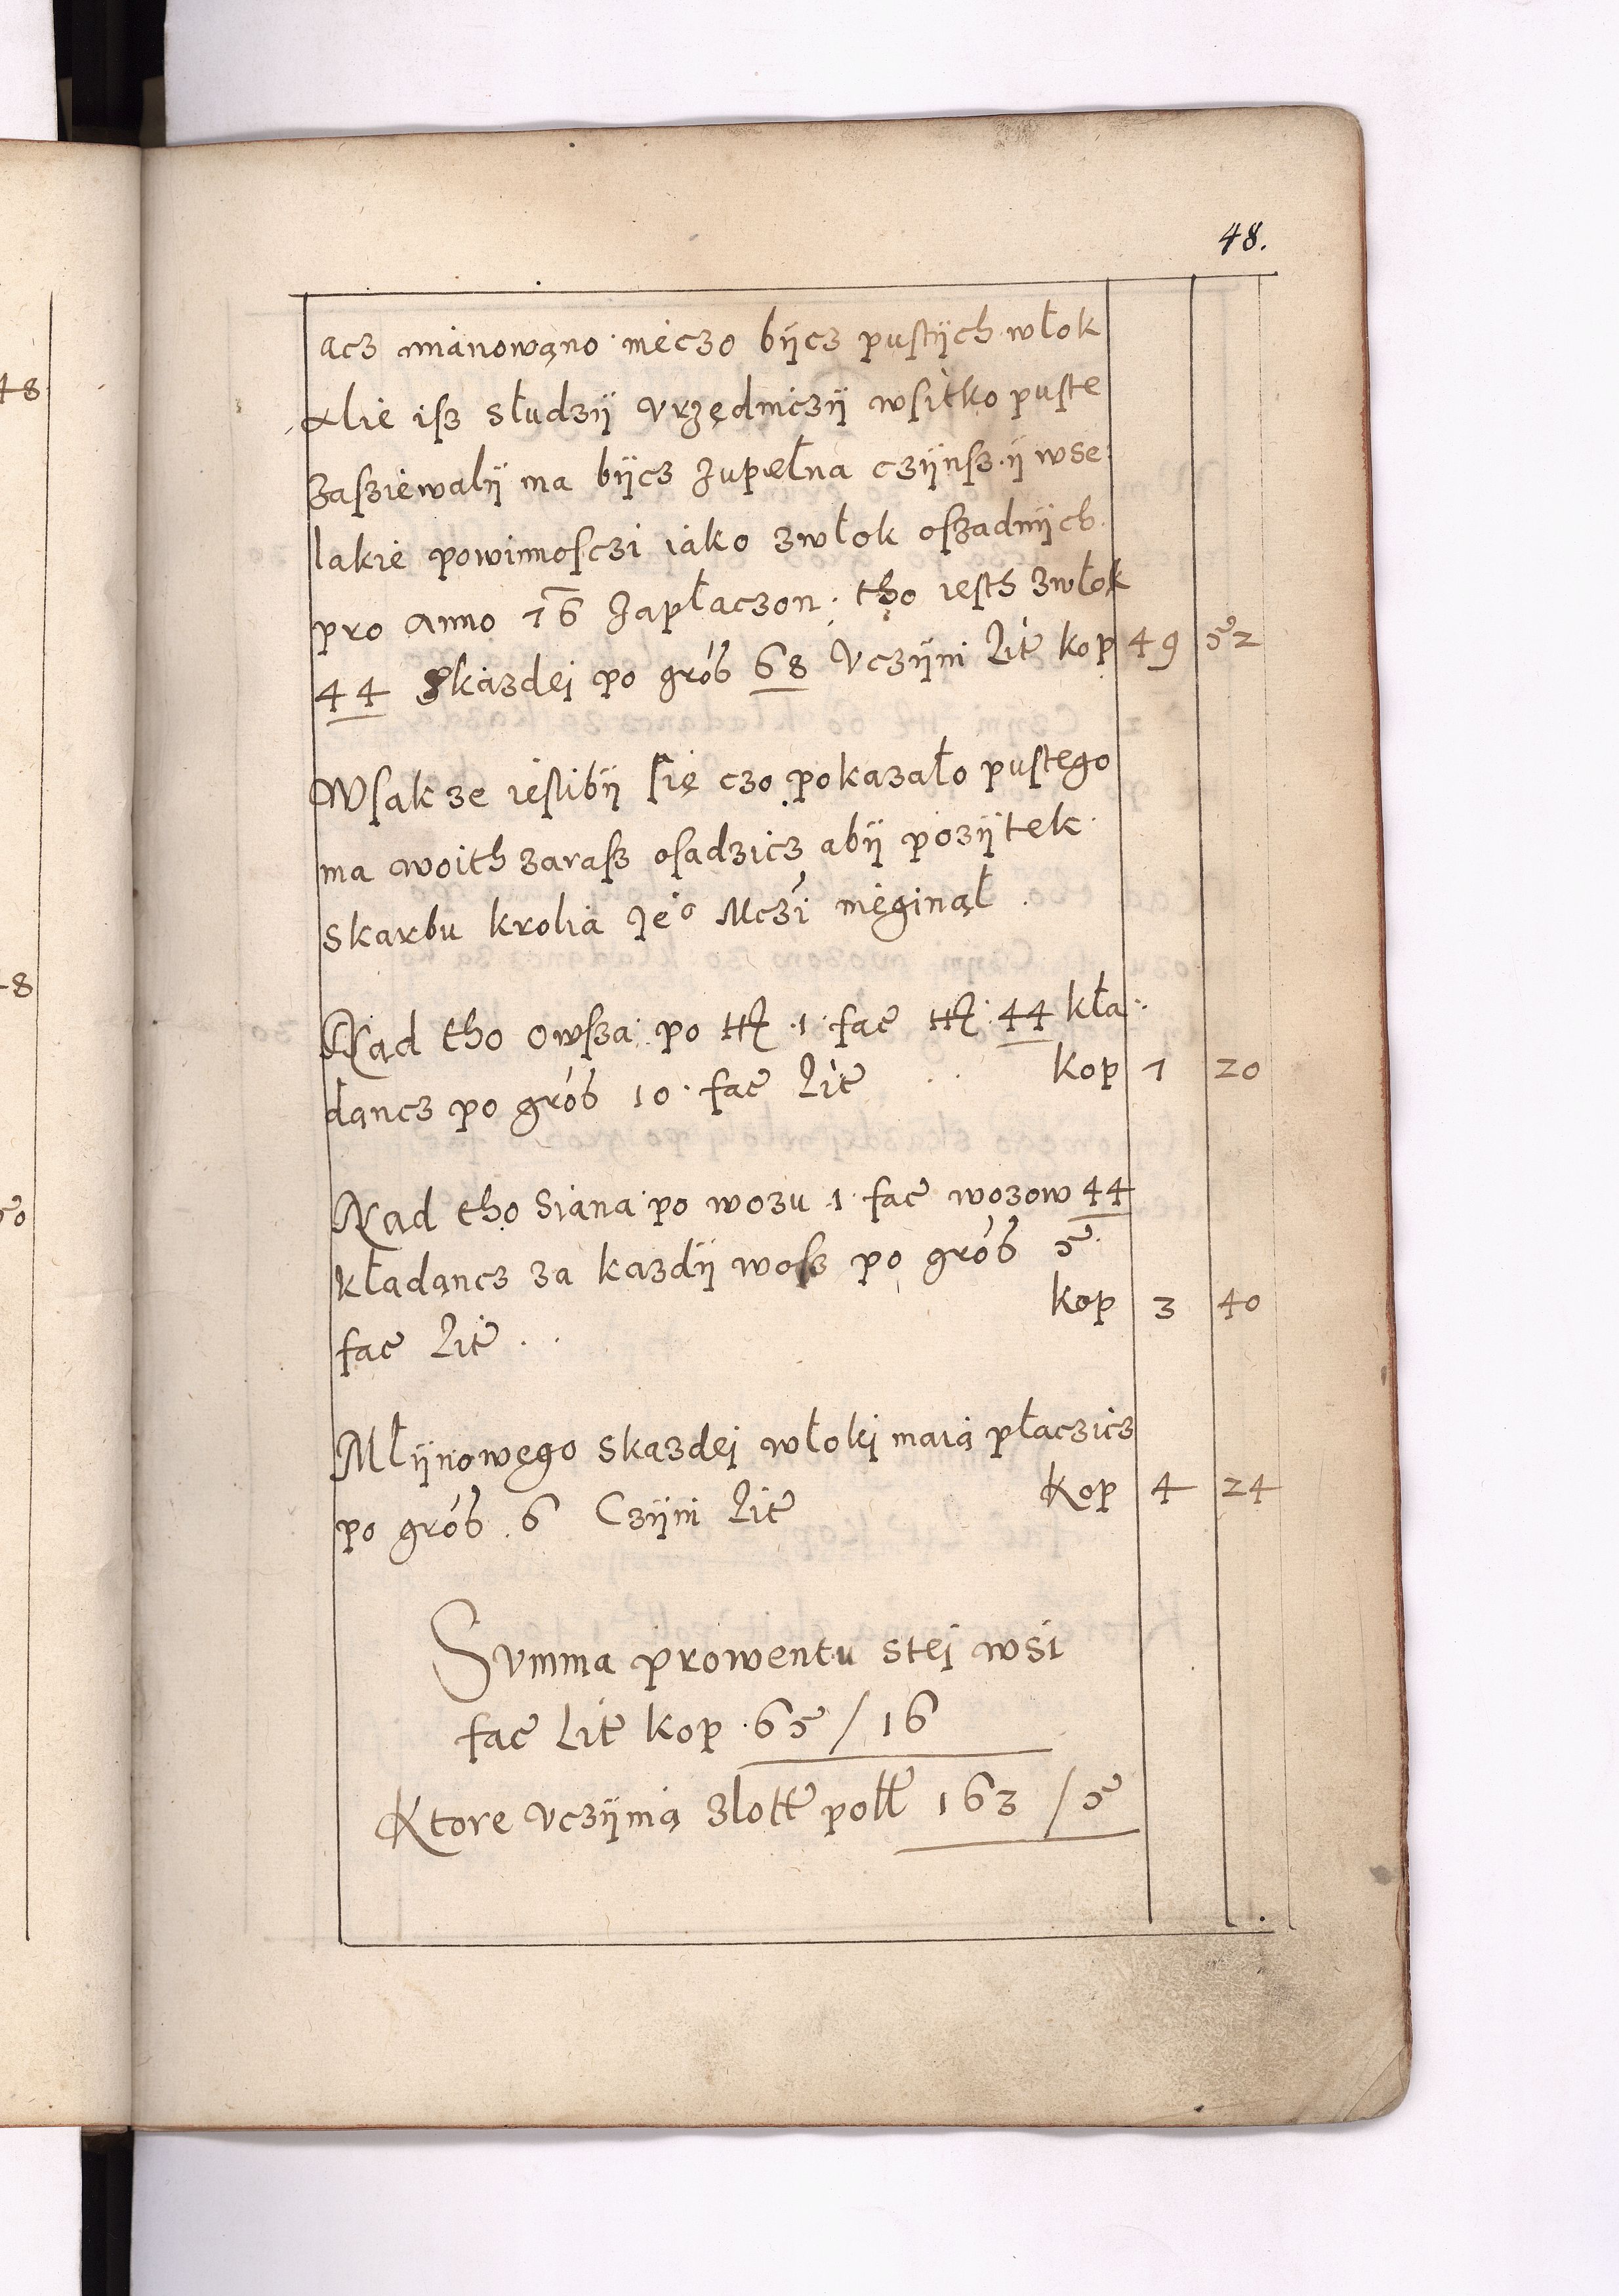 48.
acz mianowąno nieczo bijcz pustijch włok
Alie isz słudzij vrzędniczij wsitko puste
zasziewalij ma bijcz zupełna czijnsz ij wse
lakie powinnosczi iako zwłok oszadnijch
pro Anno 16 zapłaczon tho iesth zwłok
44 Skazdei po grob 68 Vczijni Lit kop 49 52
Wsakze iestlibij się czo pokazało pustego
ma woith zarasz osadzicz abij pozijtek
Skarbu krolia Je° Mczi nieginął
Nad tho owsza po 1 fac 44 kła
dancz po grob 10 fac Lit kop 1 20
Nad tho Siana po wozu 1 fac wozow 44
kładąncz za kazdij wosz po grob 5
fac Lit kop 3 40
Młijnowego skazdei włoki maią płaczicz
po grob 6 Czijni Lit kop 4 24
Summa prowentu stei wsi
fac Lit kop 65 / 16
Ktore vczijnią złott poll 163 / 5
48
48
50